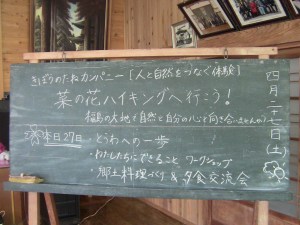 きぼうのたねカンパニー「人と自然をつなぐ体験」
菜の花ハイキングへ行こう！
福島の大地で自然と自分の心と向き合いませんか？
本日27日
・とうわへの一歩
・わたしたちにできること ワークショップ
・郷土料理づくり & 夕食交流会
四月二十七日（土）